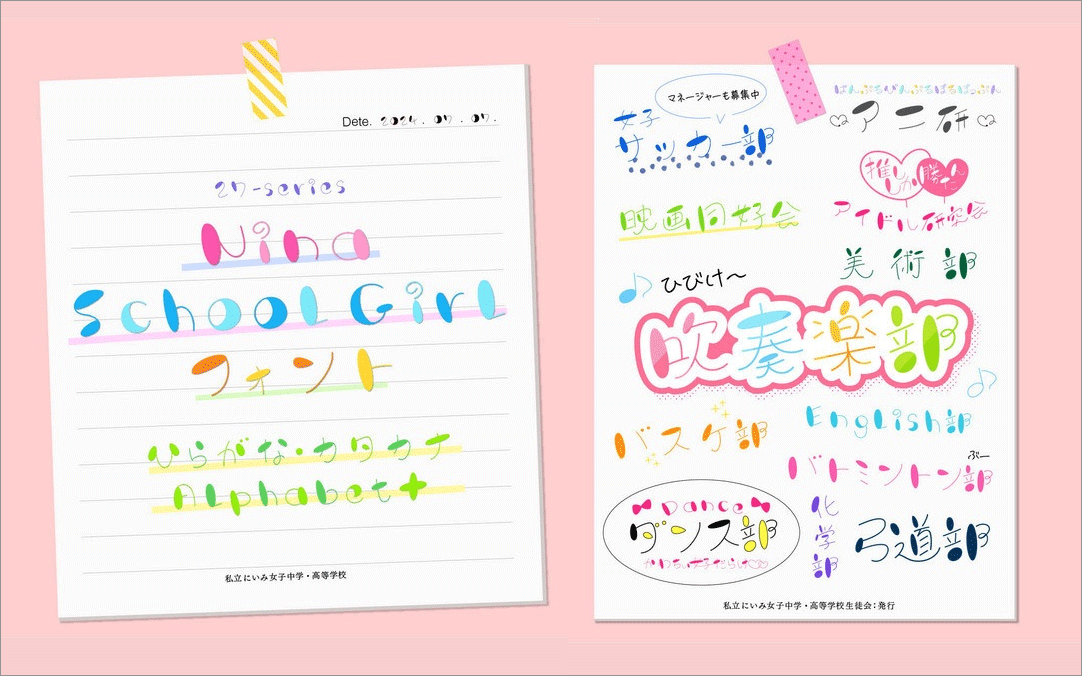 Dete. 2024. 07. 07.
27-series
Nina
School Girl
フォント
ひらがな・カタカナ
Alphabet+
私立にいみ女子中学・高等学校
マネージャーも募集中
女子
サッカー部
アニ研
推し
しか勝たん
映画同好会
アイドル研究会
美術部
ひびけ〜
吹奏楽部
バスケ部
English部
ぶー
バトミントン部
Dance
ダンス部
かわちぃ女子だらけ
化学部
弓道部
私立にいみ女子中学・高等学校生徒会：発行